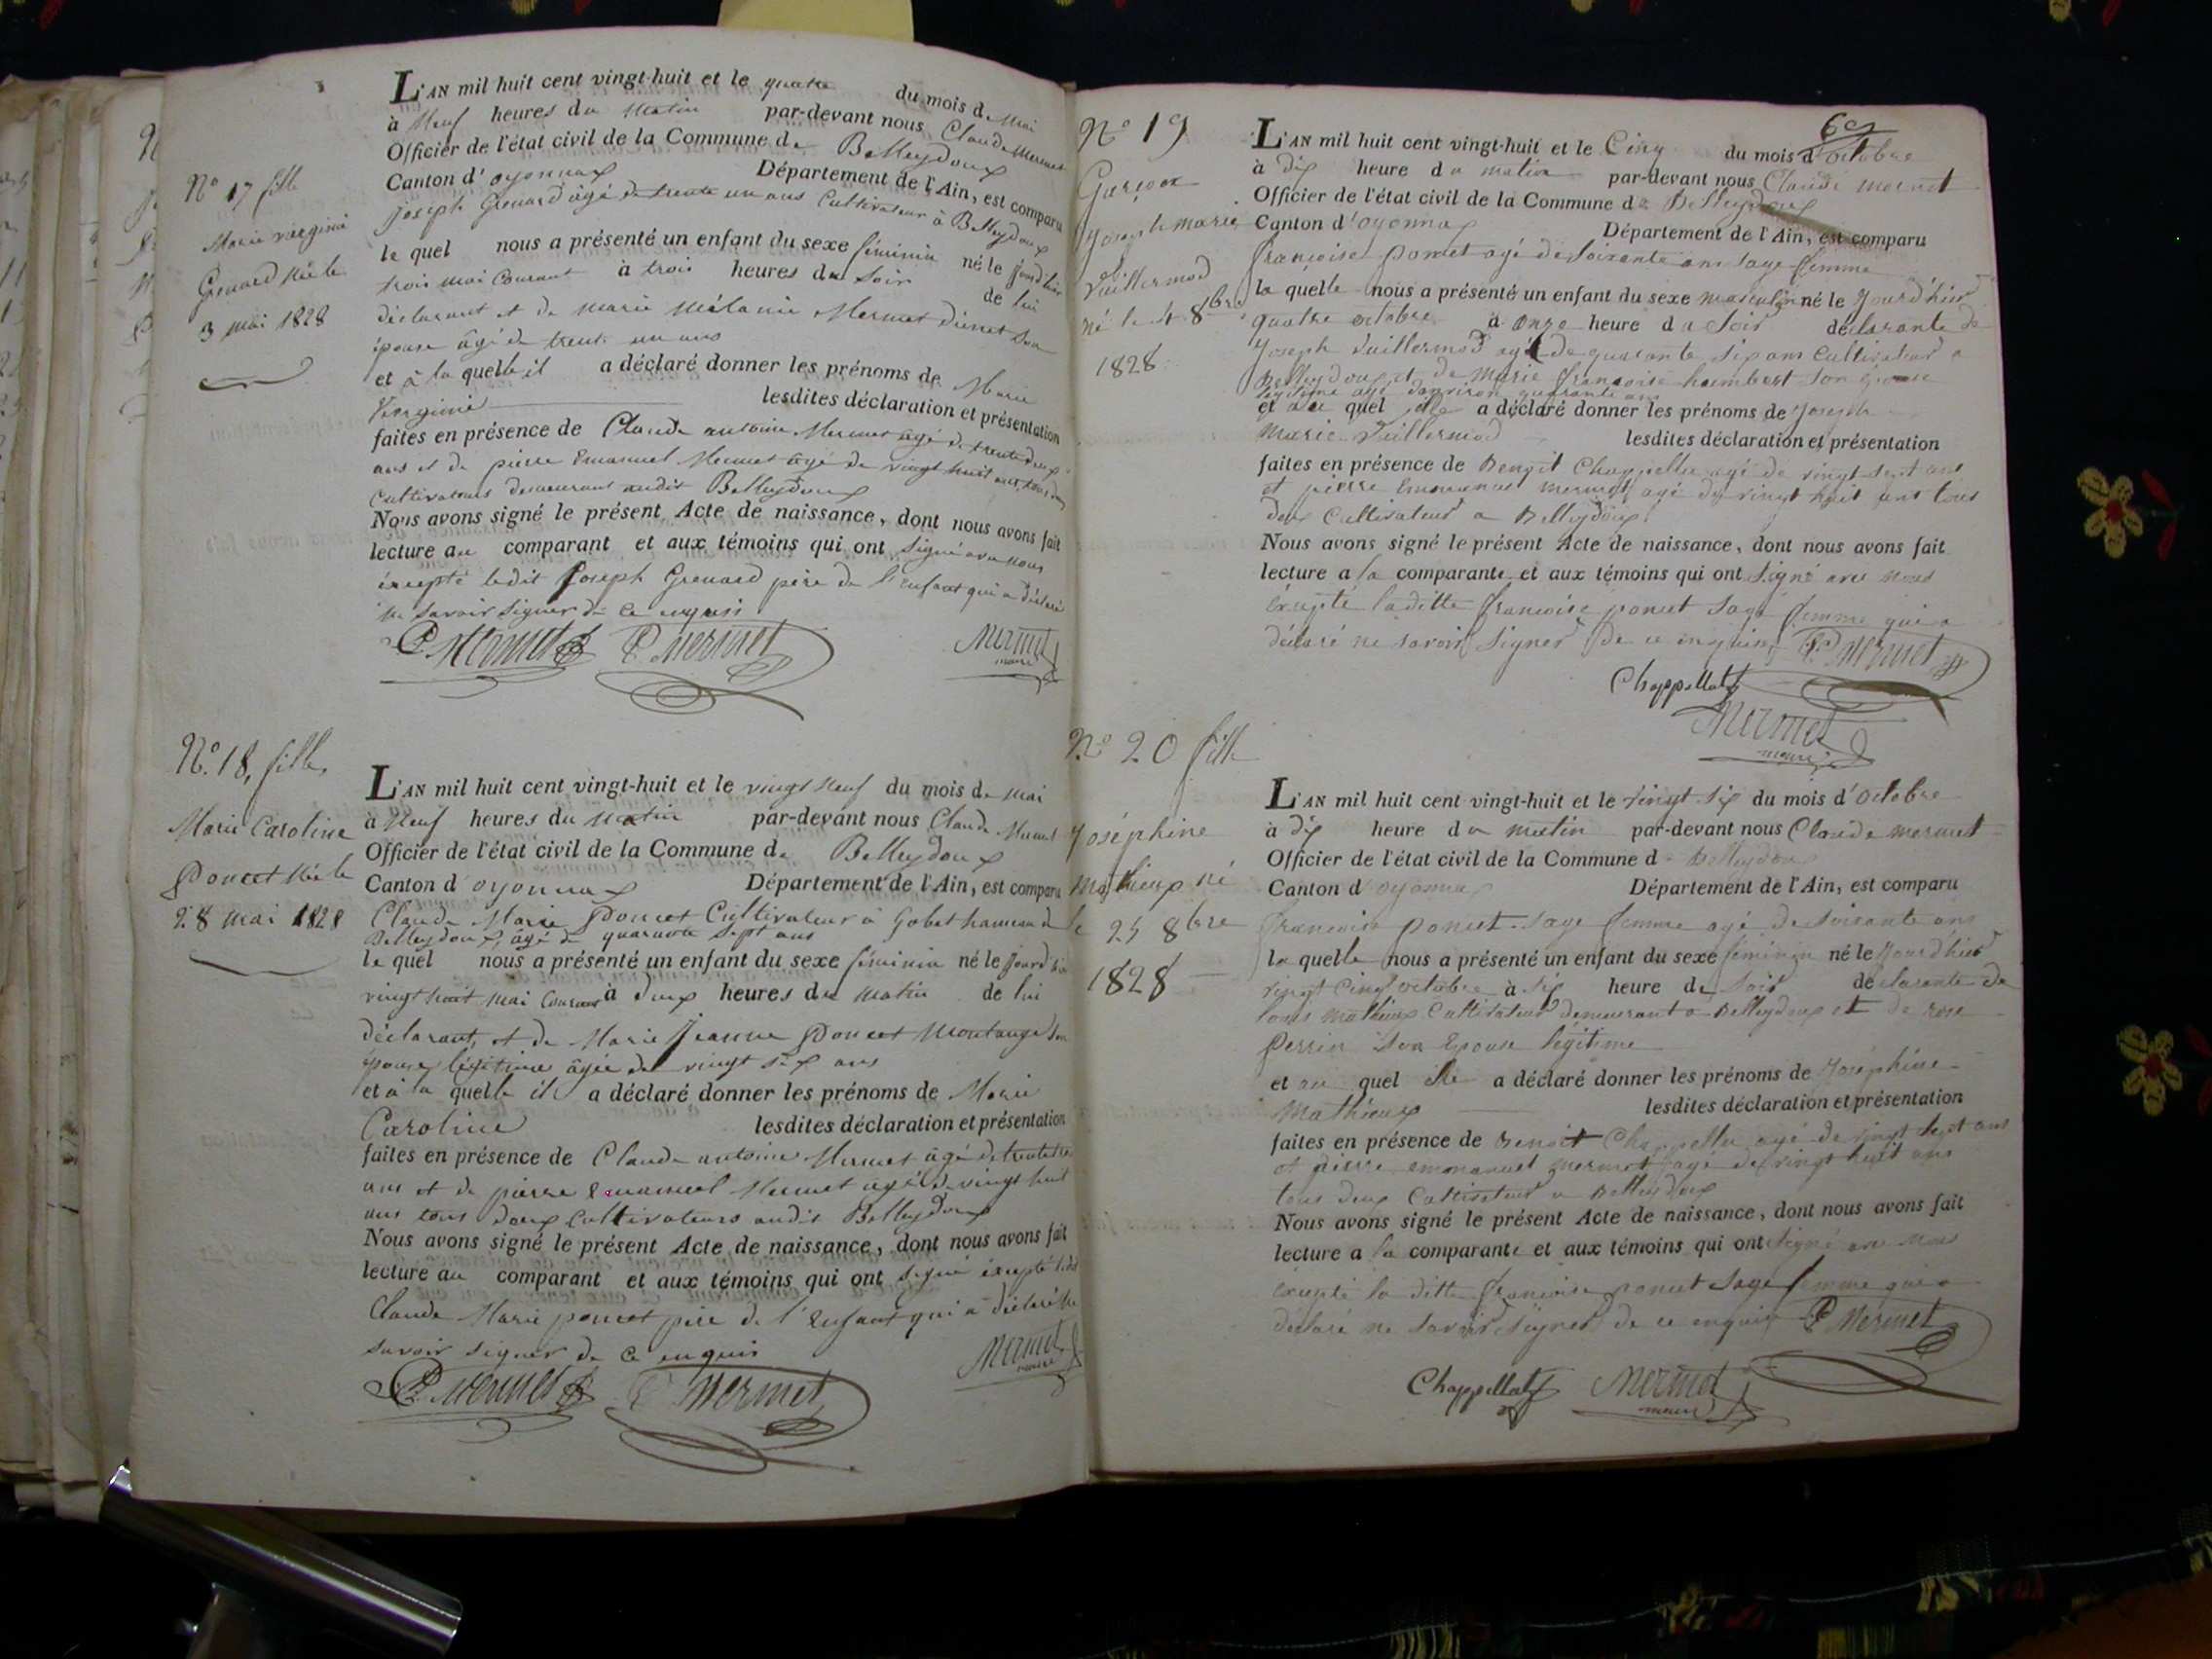 N° 17 fille
Marie virginie
Grenard née le
3 mai 1828
L'AN mil huit cent vingt-huit et le quatre du mois de Mai
à Neuf heures du Matin par-devant nous Claude Mermet
Officier de l'état civil de la Commune de Belleydoux
Canton d'oyonnax Département de l'Ain, est comparu
Joseph Grenard âgé de trente un ans Cultivateur à Belleydoux
le quel nous a présenté un enfant du sexe féminin né le jourd'hier
trois mai Courant à trois heures du Soir de lui
déclarant et de marie Mélanie Mermet son
épouse âgé de trente un ans
et à la quelle il a déclaré donner les prénoms de Marie
Virginie lesdites déclaration et présentation
faites en présence de Claude antoine Mermet âgé de trente deux
ans et de pierre Emanuel Mermet âgé de vingt huit ans, tous deux
Cultivateurs demeurant audit Belleydoux
Nous avons signé le présent Acte de naissance, dont nous avons fait
lecture au comparant et aux témoins qui ont Signé avec nous
éxcepté ledit Joseph Grenard père de l'enfant qui a déclaré
ne savoir signer de ce enquis
C Mermet P Mermet Mermet
maire
N° 18, fille,
Marie Caroline
Poncet Née le
28 mai 1828
L'AN mil huit cent vingt-huit et le vingt Neuf du mois de mai
à Neuf heures du Matin par-devant nous Claude Mermet
Officier de l'état civil de la Commune de Belleydoux
Canton d'oyonnax Département de l'Ain, est comparu
Claude Marie Poncet Cultivateur à Gobet hameau de
Belleydoux, âgé de quarante sept ans
le quel nous a présenté un enfant du sexe féminin né le jourd'hier
vingt huit mai Courant à deux heures du matin de lui
déclarant, et de Marie Jeanne Poncet Montange son
épouse légitime âgée de vingt six ans
et à la quelle il a déclaré donner les prénoms de Marie
Caroline lesdites déclaration et présentation
faites en présence de Claude antoine Mermet âgé de trente
ans et de pierre Emanuel Mermet âgé de vingt huit
ans tous deux Cultivateurs audit Belleydoux
Nous avons signé le présent Acte de naissance, dont nous avons fait
lecture au comparant et aux témoins qui ont signé éxcepté ledit
Claude Marie poncet père de l'Enfant qui a déclaré ne
savoir signer de ce enquis
C Mermet P Mermet Mermet
maire
N° 19
Garçon
Joseph marie
Vuillermod
né le 4 8bre
1828
L'AN mil huit cent vingt-huit et le Cinq du mois d'octobre
à dix heure du matin par-devant nous Claude mermet
Officier de l'état civil de la Commune de Belleydoux
Canton d'oyonnax Département de l'Ain, est comparu
françoise poncet agé de soixante ans sage femme
la quelle nous a présenté un enfant du sexe masculin né le jourd'hier
quatre octobre à onze heure du Soir déclarante de
Joseph Vuillermod agé de quarante six ans Cultivateur a
Belleydoux et de Marie françoise humbert son épouse
légitime agé d'environ quarante ans
et au quel elle a déclaré donner les prénoms de Joseph
Marie Vuillermod lesdites déclaration et présentation
faites en présence de Benoit Chappellu agé de vingt sept ans
et pierre emmanuel mermet agé de vingt huit ans tous
deux Cultivateur a Belleydoux
Nous avons signé le présent Acte de naissance, dont nous avons fait
lecture a la comparante et aux témoins qui ont signé avec nous
éxcepté laditte françoise poncet sage femme qui a
déclaré ne savoir signer de ce enquise P Mermet
Chappellu
Mermet
maire
N° 20 fille
Joséphine
Mathieux né
le 25 8bre
1828
L'AN mil huit cent vingt-huit et le vingt six du mois d'octobre
à dix heure du matin par-devant nous Claude mermet
Officier de l'état civil de la Commune de Belleydoux
Canton d'oyonnax Département de l'Ain, est comparu
françoise poncet sage femme agé de soixante ans
la quelle nous a présenté un enfant du sexe féminin né le jourd'hier
vingt Cinq octobre à six heure du Soir déclarante de
louis mathieux Cultivateur demeurant a Belleydoux et de rose
perrin son Epouse légitime
et au quel elle a déclaré donner les prénoms de Joséphine
Mathieux lesdites déclaration et présentation
faites en présence de Benoit Chappellu agé de vingt sept ans
et pierre emmanuel mermet agé de vingt huit ans
tous deux Cultivateur a Belleydoux
Nous avons signé le présent Acte de naissance, dont nous avons fait
lecture a la comparante et aux témoins qui ont signé avec nous
éxcepté la ditte françoise poncet sage femme qui a
déclaré ne savoir signer de ce enquise P Mermet
Chappellu Mermet
maire